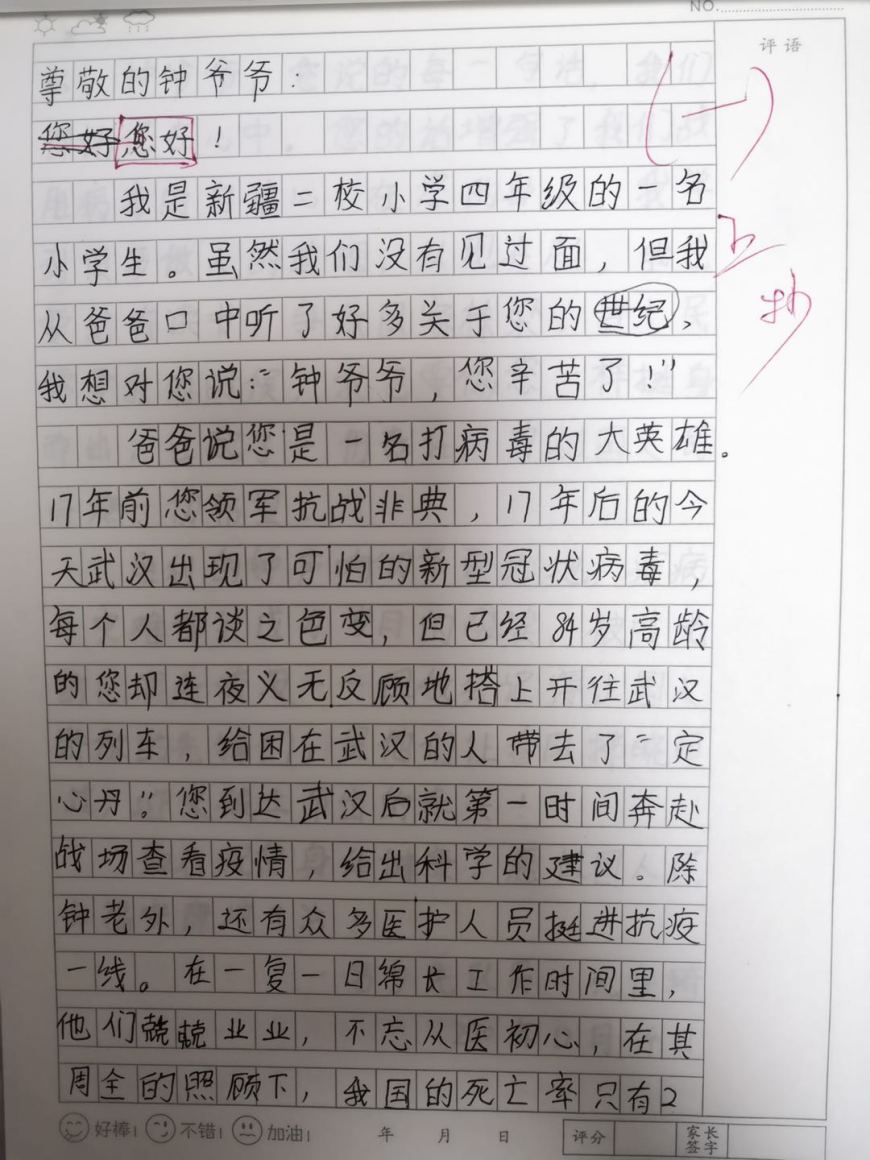 NO.
评语
尊敬的钟爷爷：
您好您好！
(一)
我是新疆二校小学四年级的一名
小学生。虽然我们没有见过面，但我
从爸爸口中听了好多关于您的世纪，
抄
我想对您说：“钟爷爷，您辛苦了！”
爸爸说您是一名打病毒的大英雄。
17年前您领军抗战非典，17年后的今
天武汉出现了可怕的新型冠状病毒，
每个人都谈之色变，但已经84岁高龄
的您却连夜义无反顾地搭上开往武汉
的列车，给困在武汉的人带去了“定
心丹”。您到达武汉后就第一时间奔赴
战场查看疫情，给出科学的建议。除
钟老外，还有众多医护人员挺进抗疫
一线。在一复一日绵长工作时间里，
他们兢兢业业，不忘从医初心，在其
周全的照顾下，我国的死亡率只有2
好棒！ 不错！ 加油！ 年 月 日 评分 家长签字